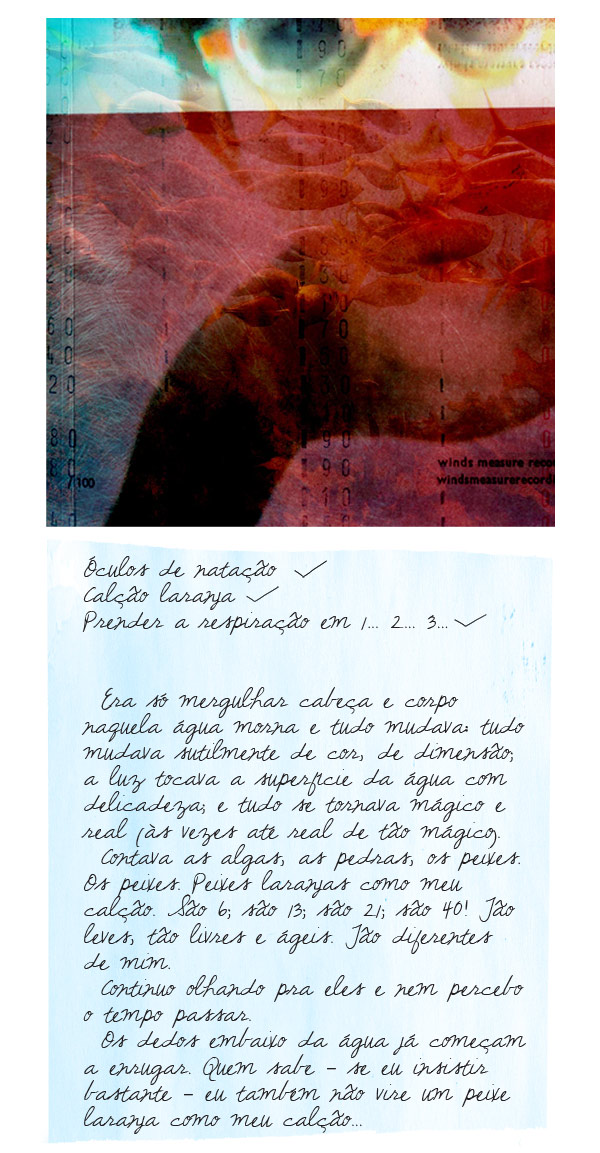 winds measure recor
windsmeasurerecordi
7/100
Óculos de natação ✓
Calção laranja ✓
Prender a respiração em 1... 2... 3... ✓
Era só mergulhar cabeça e corpo
naquela água morna e tudo mudava: tudo
mudava sutilmente de cor, de dimensão;
a luz tocava a superfície da água com
delicadeza; e tudo se tornava mágico e
real (às vezes até real de tão mágico).
Contava as algas, as pedras, os peixes.
Os peixes. Peixes laranjas como meu
calção. São 6; são 13; são 21; são 40! Tão
leves, tão livres e ágeis. Tão diferentes
de mim.
Continuo olhando pra eles e nem percebo
o tempo passar.
Os dedos embaixo da água já começam
a enrugar. Quem sabe - se eu insistir
bastante - eu também não vire um peixe
laranja como meu calção...